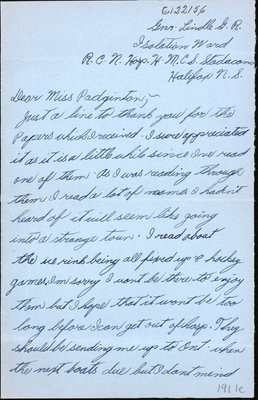 C122156
Gnr. Lindle G. R.
Isolation Ward
R.C.N. Hosp. H.M.C.S. Stadacona
Halifax N.S.
Dear Miss Padginton,-
Just a line to thank you for the
Papers which I received. I sure appreciated
it as it is a little while since I've read
one of them. As I was reading through
them I read a lot of names I hadn't
heard of it will seem like going
into a strange town. I read about
the ice rink being all fixed up & hockey
games. Im sorry I wont be there to enjoy
them but I hope that it wont be too
long before I can get out of hosp. They
should be sending me up to Ont. when
the next boats due but I dont mind